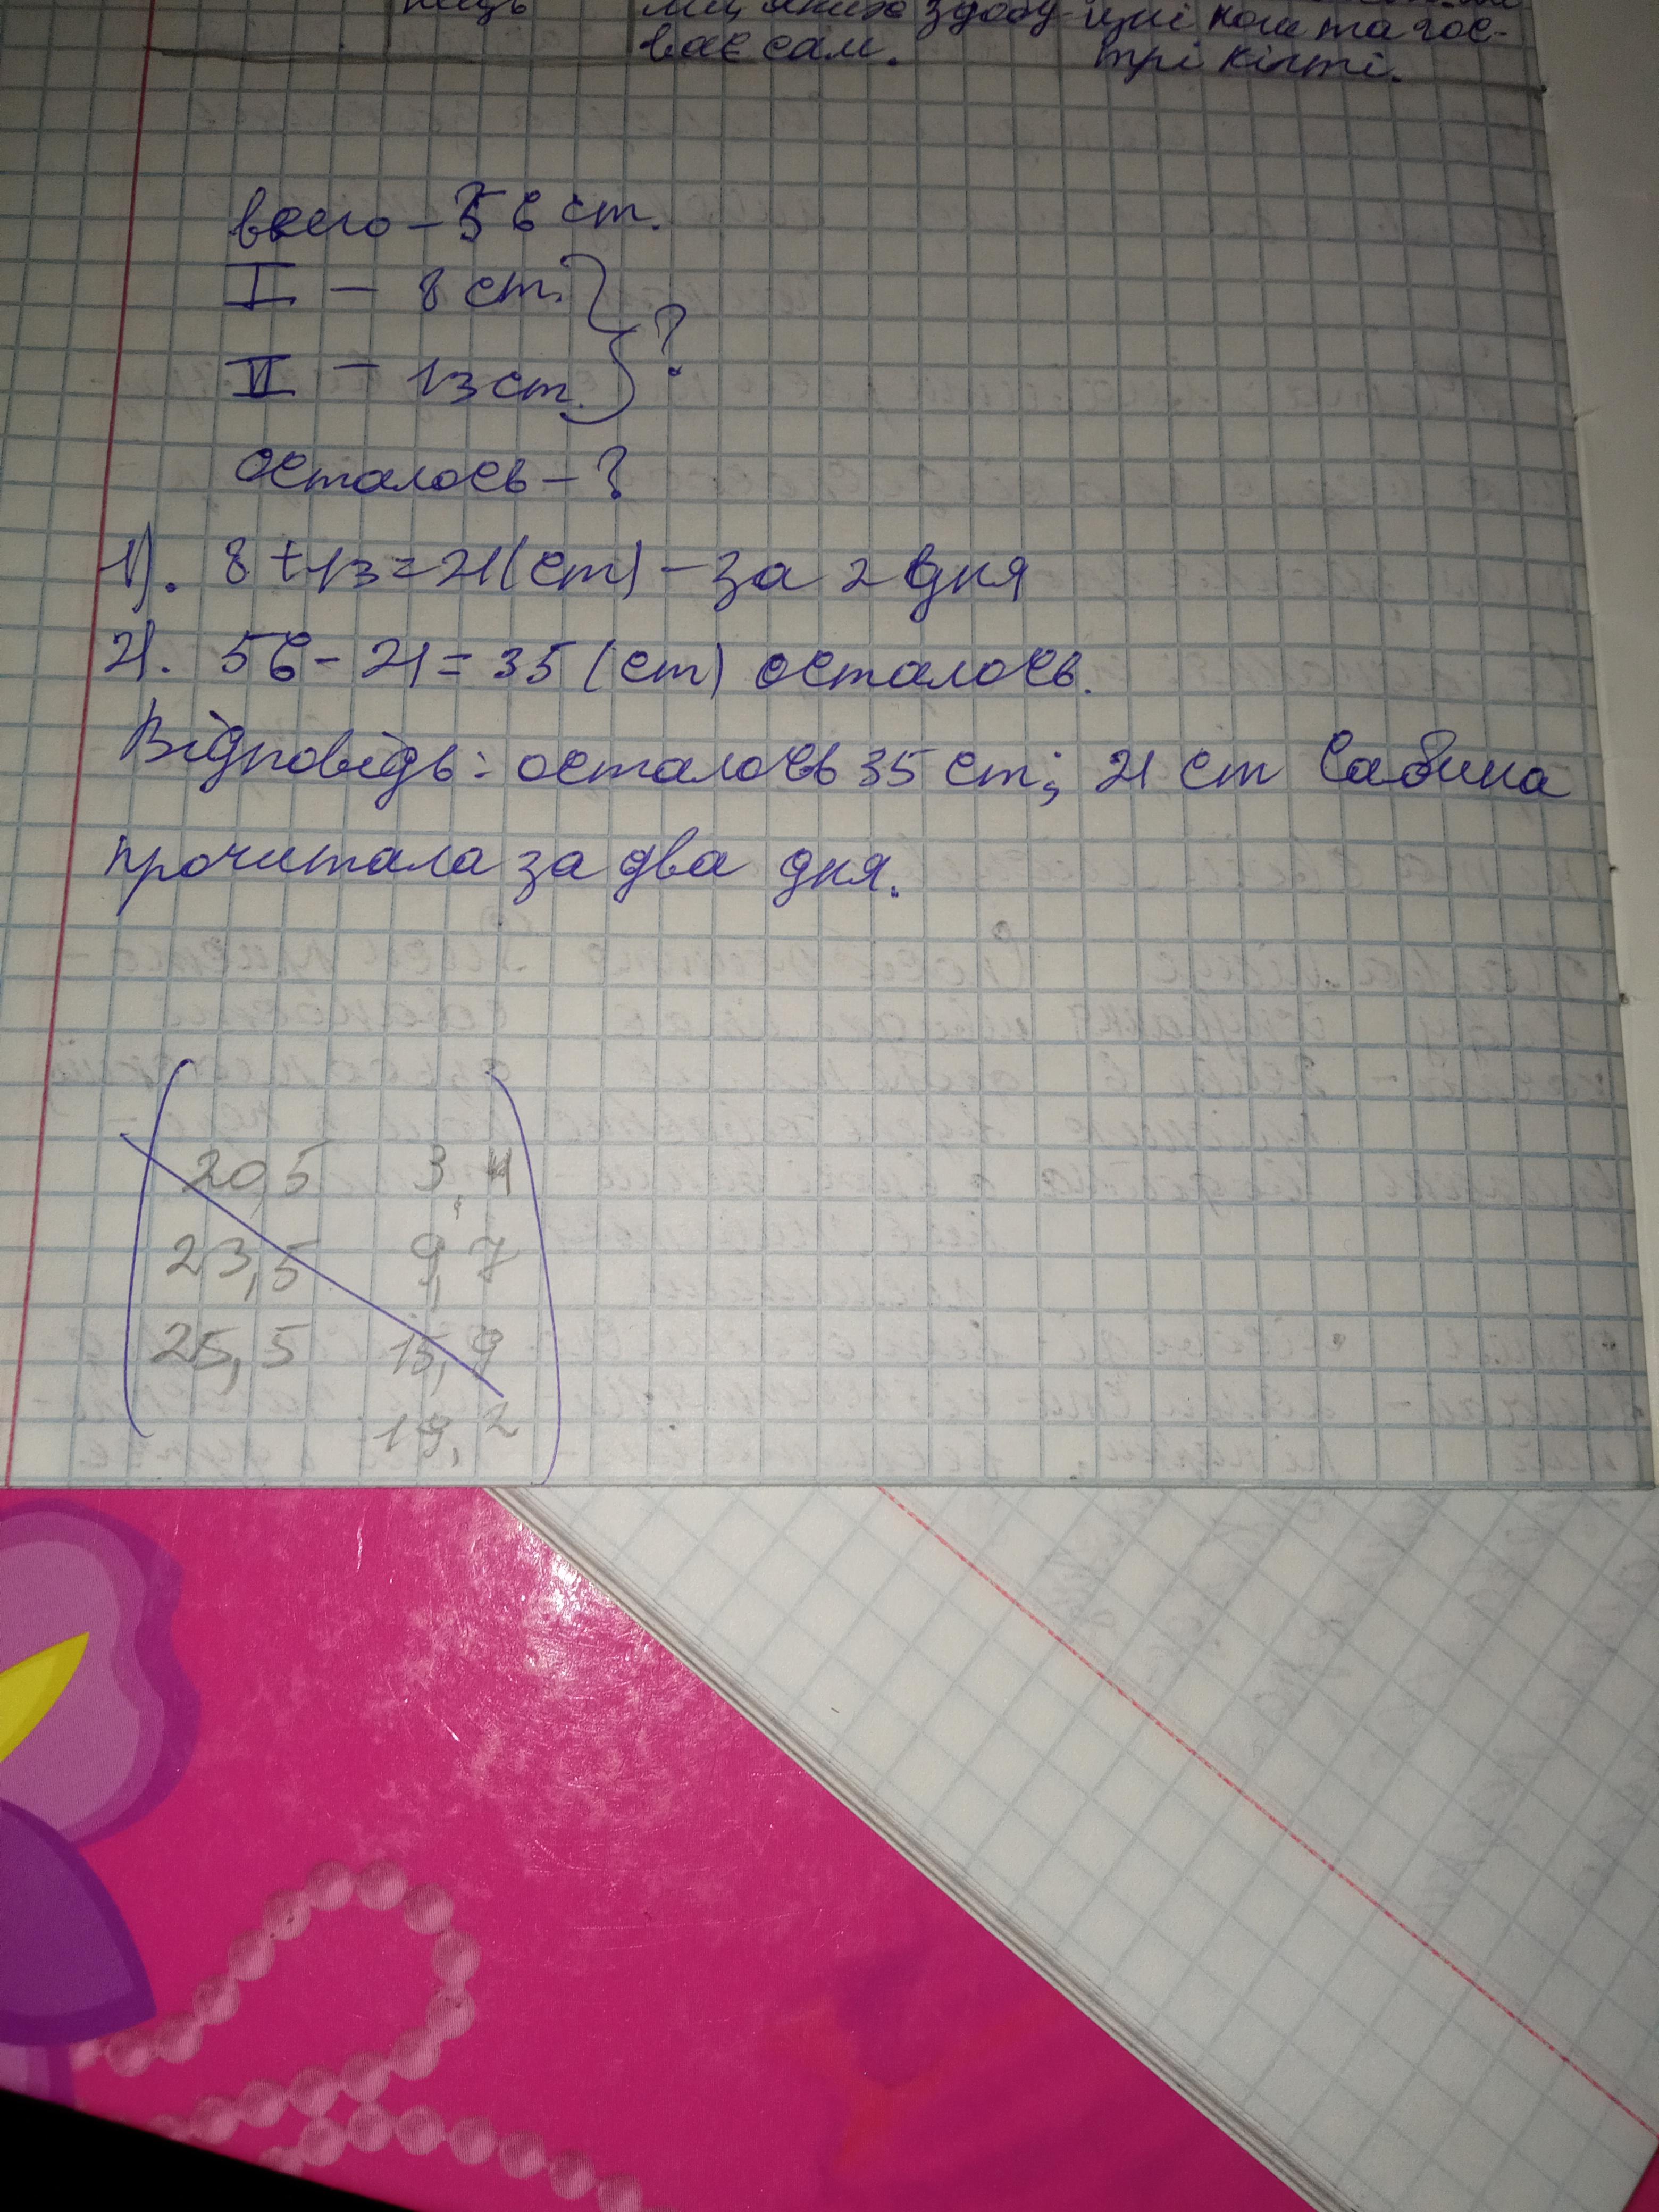 здобу- цні коги та гос-
ває сам. трі кігті.
всего - 56 ст.
I - 8 ст.
?
II - 13 ст.
осталось - ?
1). 8 + 13 = 21 (ст) - за 2 дня
2). 56 - 21 = 35 (ст) осталось.
Відповідь: осталось 35 ст; 21 ст Сабина
прочитала за два дня.
20,5 3,4
23,5 9,7
25,5 15,9
19,2